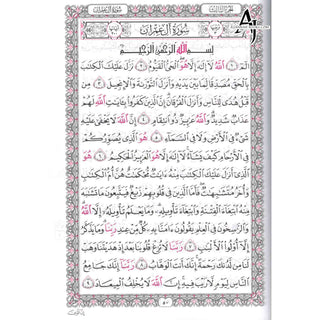 سُورَةُ آلِ عِمْرَانَ
الجزء الثالث
سُورَةُ آلِ عِمْرَانَ
بِسْمِ ٱللَّهِ ٱلرَّحْمَٰنِ ٱلرَّحِيمِ
الٓمٓ ١ ٱللَّهُ لَآ إِلَٰهَ إِلَّا هُوَ ٱلْحَىُّ ٱلْقَيُّومُ ٢ نَزَّلَ عَلَيْكَ ٱلْكِتَٰبَ
بِٱلْحَقِّ مُصَدِّقًا لِّمَا بَيْنَ يَدَيْهِ وَأَنزَلَ ٱلتَّوْرَىٰةَ وَٱلْإِنجِيلَ ٣ مِن
قَبْلُ هُدًى لِّلنَّاسِ وَأَنزَلَ ٱلْفُرْقَانَ إِنَّ ٱلَّذِينَ كَفَرُوا۟ بِـَٔايَٰتِ ٱللَّهِ لَهُمْ
عَذَابٌ شَدِيدٌ وَٱللَّهُ عَزِيزٌ ذُو ٱنتِقَامٍ ٤ إِنَّ ٱللَّهَ لَا يَخْفَىٰ عَلَيْهِ
شَىْءٌ فِى ٱلْأَرْضِ وَلَا فِى ٱلسَّمَآءِ ٥ هُوَ ٱلَّذِى يُصَوِّرُكُمْ
فِى ٱلْأَرْحَامِ كَيْفَ يَشَآءُ لَآ إِلَٰهَ إِلَّا هُوَ ٱلْعَزِيزُ ٱلْحَكِيمُ ٦ هُوَ
ٱلَّذِىٓ أَنزَلَ عَلَيْكَ ٱلْكِتَٰبَ مِنْهُ ءَايَٰتٌ مُّحْكَمَٰتٌ هُنَّ أُمُّ ٱلْكِتَٰبِ
وَأُخَرُ مُتَشَٰبِهَٰتٌ فَأَمَّا ٱلَّذِينَ فِى قُلُوبِهِمْ زَيْغٌ فَيَتَّبِعُونَ مَا تَشَٰبَهَ
مِنْهُ ٱبْتِغَآءَ ٱلْفِتْنَةِ وَٱبْتِغَآءَ تَأْوِيلِهِۦ وَمَا يَعْلَمُ تَأْوِيلَهُۥٓ إِلَّا ٱللَّهُ
وَٱلرَّٰسِخُونَ فِى ٱلْعِلْمِ يَقُولُونَ ءَامَنَّا بِهِۦ كُلٌّ مِّنْ عِندِ رَبِّنَا وَمَا يَذَّكَّرُ
إِلَّآ أُو۟لُوا۟ ٱلْأَلْبَٰبِ ٧ رَبَّنَا لَا تُزِغْ قُلُوبَنَا بَعْدَ إِذْ هَدَيْتَنَا وَهَبْ
لَنَا مِن لَّدُنكَ رَحْمَةً إِنَّكَ أَنتَ ٱلْوَهَّابُ ٨ رَبَّنَآ إِنَّكَ جَامِعُ
ٱلنَّاسِ لِيَوْمٍ لَّا رَيْبَ فِيهِ إِنَّ ٱللَّهَ لَا يُخْلِفُ ٱلْمِيعَادَ ٩
٥٠